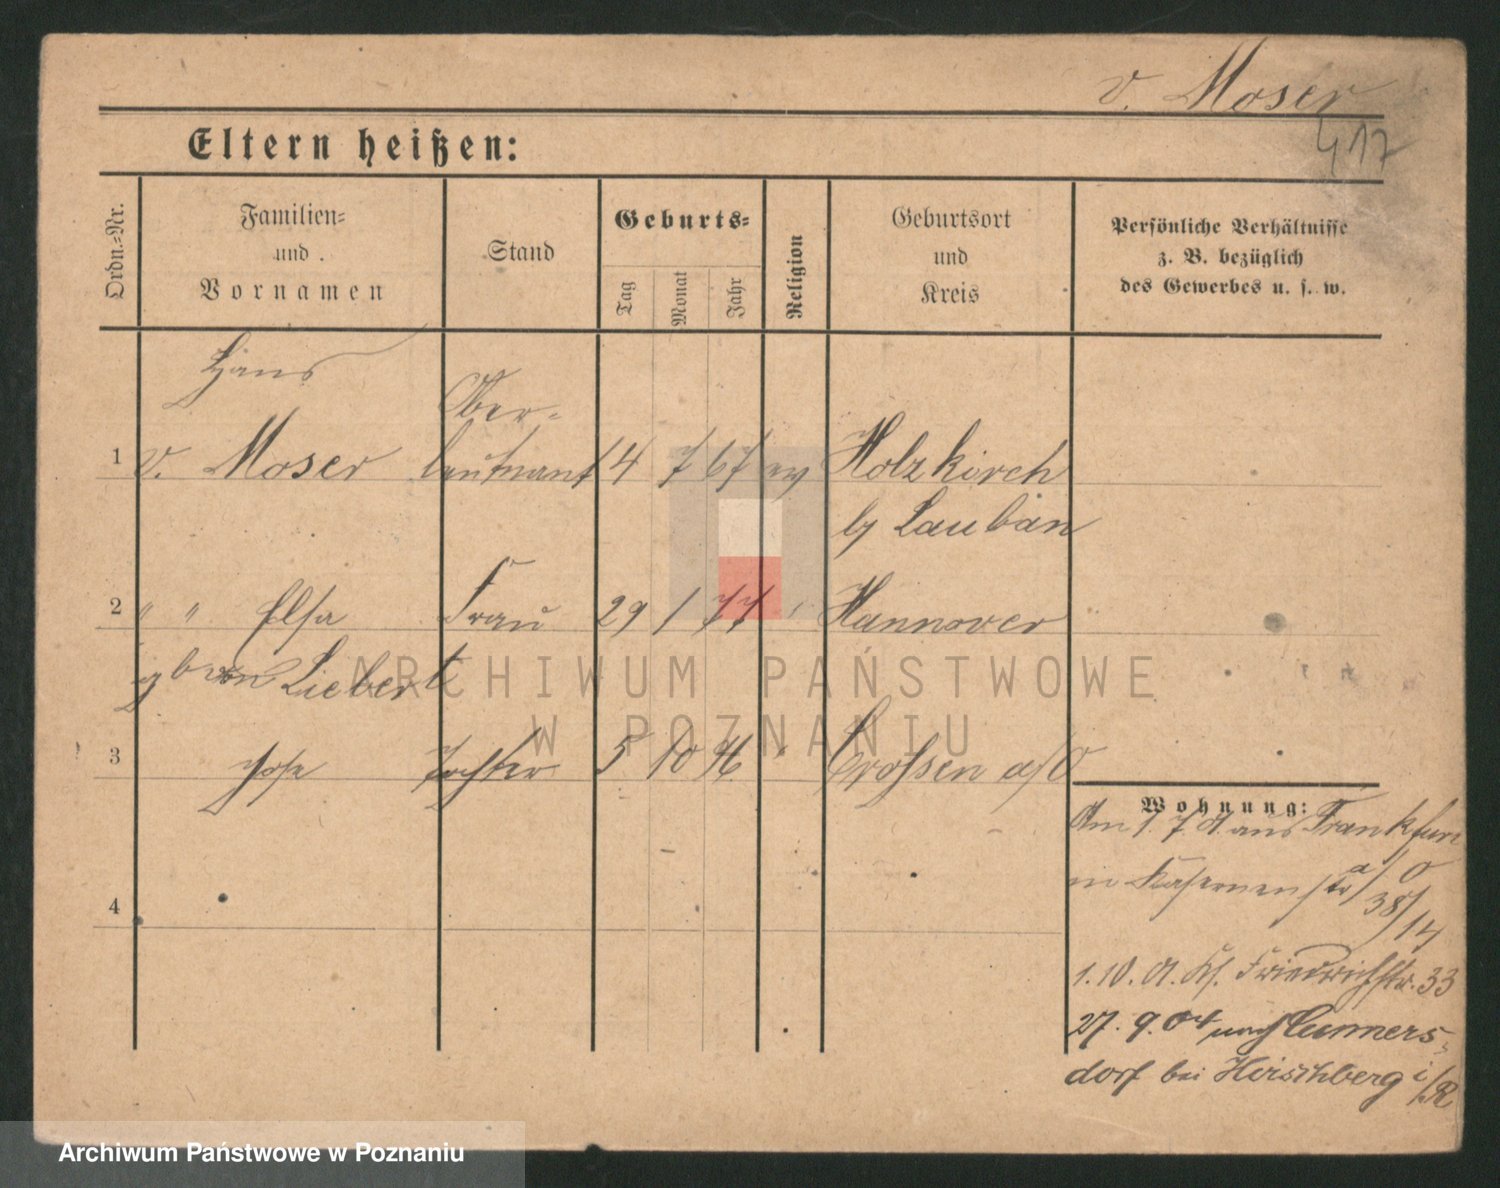 v. Moser
417
Eltern heißen:
Ordn.=Nr.
Familien=
und
Vornamen
Stand
Geburts=
Tag
Monat
Jahr
Religion
Geburtsort
und
Kreis
Persönliche Verhältnisse
z. B. bezüglich
des Gewerbes u. s. w.
Hans
Ober=
1 v. Moser leutnant 14 7 67 ev Holzkirch
b/ Lauban
2 " " Elsa Frau 29 1 77 " Hannover
gb von Liebert
3 Tochter 5 10 96 " Crossen a/O
4
Wohnung:
Am 1. 7. 01. aus Frankfurt
a/O
in Kasernenstr 38/14
1. 10. 01. Ks. Friedrichstr. 33
27. 9. 04 nach Cunners=
dorf bei Hirschberg i/R
ARCHIWUM PAŃSTWOWE
W POZNANIU
Archiwum Państwowe w Poznaniu